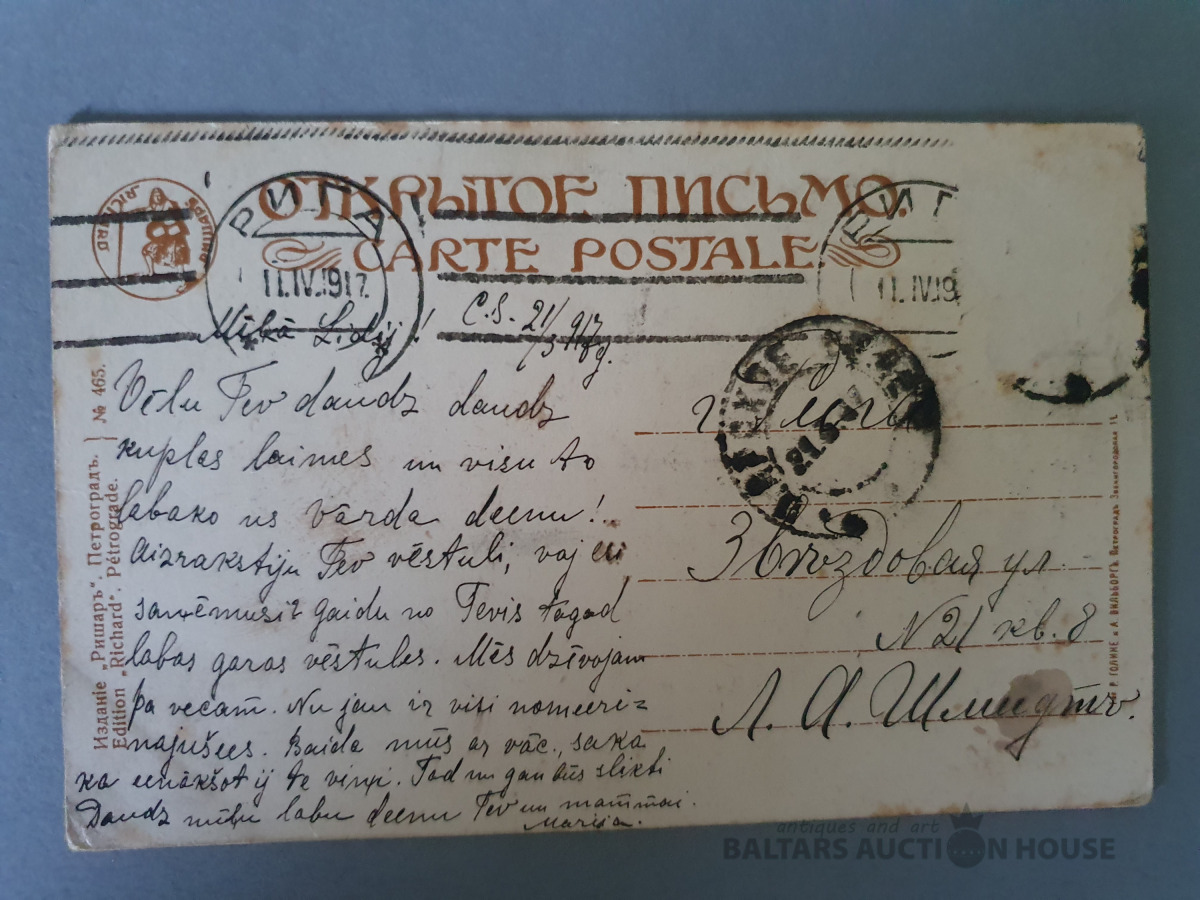 ОТКРЫТОЕ ПИСЬМО.
CARTE POSTALE
РИШАРЪ RICHARD
РИГА
11.IV.1917.
РИГ
11.IV.19
Mīļā Lidij! C.S. 21/3 917 g.
Vēlu Tev daudz daudz
kuplas laimes un visu to
labako us vārda deenu!
Aizrakstiju Tev vēstuli, vaj esi
saņēmusi? gaidu no Tevis tagad
labas garas vēstules. Mēs dzīvojam
pa vecam̄. Nu jau ir visi nomeeri=
najušees. Baida mūs ar vāc., saka
ka eenākšot ij te viņi. Tad nu gan būs slikti
Daudz mīļu labu deenu Tev un mam̄mai.
Marija.
г. Рига
21.3
Звѣздовая ул.
N 21 кв. 8
Л. А. Шмидтъ.
Изданіе „Ришаръ“. Петроградъ.
Edition „Richard“. Pétrograde.
№ 465.
Р. ГОЛИКЕ и А. ВИЛЬБОРГЪ. Петроградъ Звенигородская 11.
antiques and art
BALTARS AUCTION HOUSE